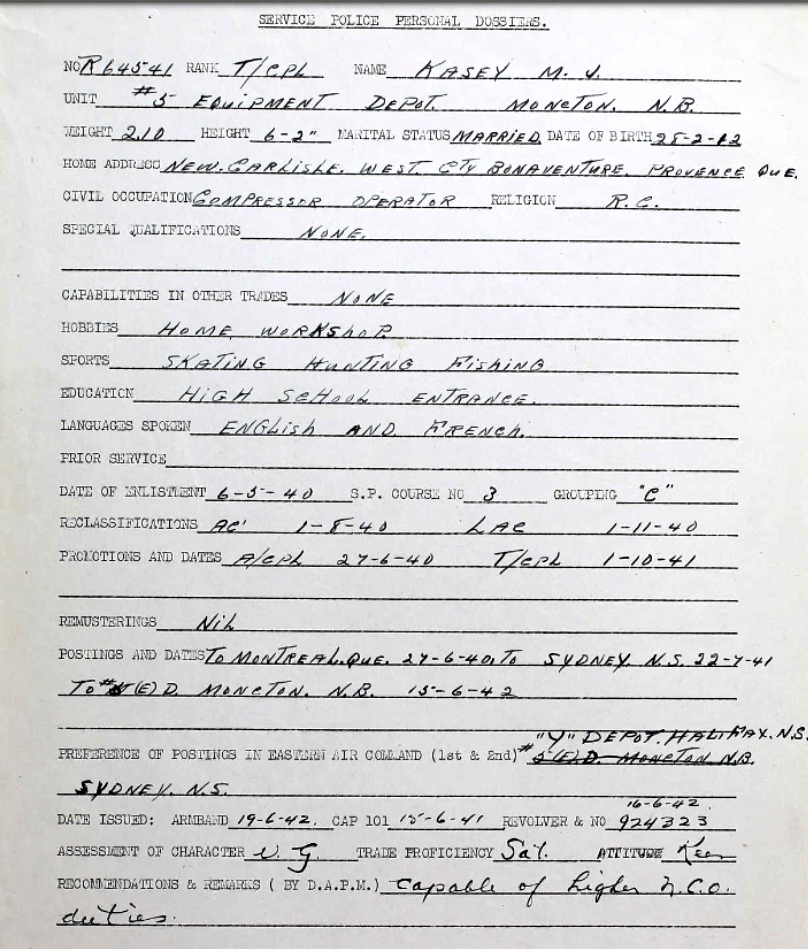 SERVICE POLICE PERSONAL DOSSIERS.
NO R64541 RANK T/CPL NAME KASEY M. J.
UNIT #5 EQUIPMENT DEPOT. MONCTON. N.B.
WEIGHT 210 HEIGHT 6-2" MARITAL STATUS MARRIED. DATE OF BIRTH 25-2-12
HOME ADDRESS NEW. CARLISLE. WEST. CTY BONAVENTURE. PROVENCE QUE.
CIVIL OCCUPATION COMPRESSOR OPERATOR RELIGION R.C.
SPECIAL QUALIFICATIONS NONE.
CAPABILITIES IN OTHER TRADES NONE
HOBBIES HOME WORKSHOP.
SPORTS SKATING HUNTING FISHING
EDUCATION HIGH SCHOOL ENTRANCE.
LANGUAGES SPOKEN ENGLISH AND FRENCH.
PRIOR SERVICE
DATE OF ENLISTMENT 6-5-40 S.P. COURSE NO 3 GROUPING "C"
RECLASSIFICATIONS AC' 1-8-40 LAC 1-11-40
PROMOTIONS AND DATES A/CPL 27-6-40 T/CPL 1-10-41
REMUSTERINGS NIL
POSTINGS AND DATES TO MONTREAL. QUE. 27-6-40. TO SYDNEY. N.S. 22-7-41
TO #5 (E) D. MONCTON. N.B. 15-6-42
"Y" DEPOT. HALIFAX. N.S.
PREFERENCE OF POSTINGS IN EASTERN AIR COMMAND (1st & 2nd) #5(E).D. MONCTON N.B.
SYDNEY. N.S.
16-6-42.
DATE ISSUED: ARMBAND 19-6-42. CAP 101 15-6-41 REVOLVER & NO 924323
ASSESSMENT OF CHARACTER V. G. TRADE PROFICIENCY Sat. ATTITUDE Keen
RECOMMENDATIONS & REMARKS ( BY D.A.P.M.) Capable of higher N.C.O.
duties.